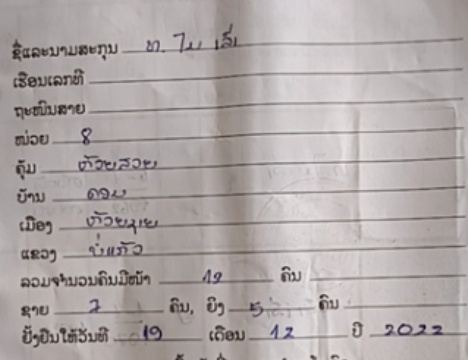 ຊື່ແລະນາມສະກຸນ ທ. ໄມ ເສີ່
ເຮືອນເລກທີ
ຖະໜົນສາຍ
ໜ່ວຍ 8
ຄຸ້ມ ຫ້ວຍສວຍ
ບ້ານ ດອນ
ເມືອງ ຫ້ວຍຊາຍ
ແຂວງ ບໍ່ແກ້ວ
ລວມຈຳນວນຄົນມີໜ້າ 12 ຄົນ
ຊາຍ 7 ຄົນ, ຍິງ 5 ຄົນ
ຢັ້ງຢືນໃຫ້ວັນທີ 19 ເດືອນ 12 ປີ 2022